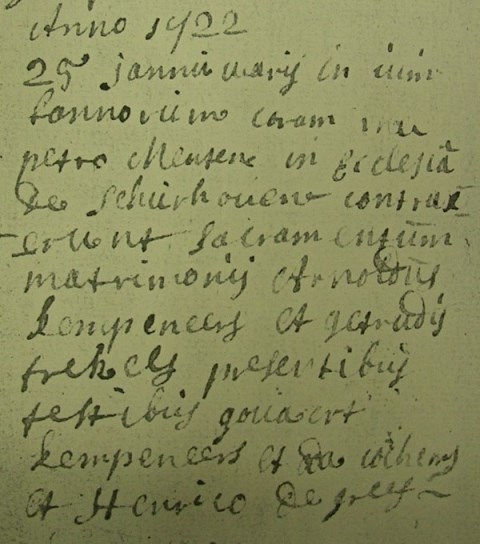 Anno 1722
25 jannuuarij in vim
bannorum coram me
petro Meutene in Ecclesiã
de schurhovene contrax
erunt sacramentum
matrimonij Arnoldus
kempeneers et getrudis
frekels presentibus
testibus govaert
kempeneers et
et Henrico de greef